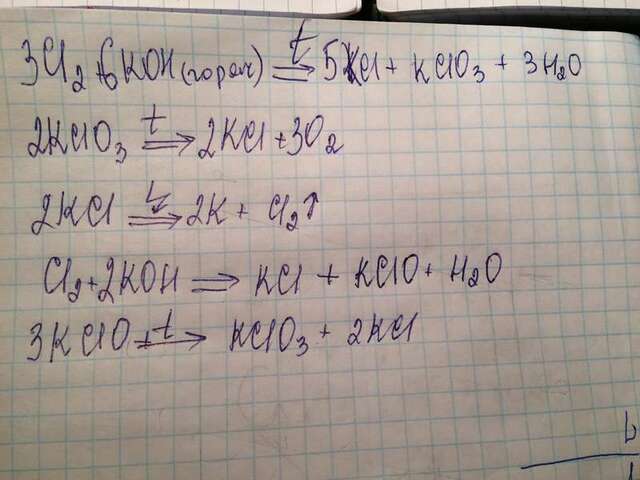 3Cl₂+6KOH(горяч) =t=> 5KCl + KClO₃ + 3H₂O
2KClO₃ =t=> 2KCl+3O₂
2KCl => 2K + Cl₂↑
Cl₂+2KOH => KCl + KClO + H₂O
3KClO =t=> KClO₃ + 2KCl